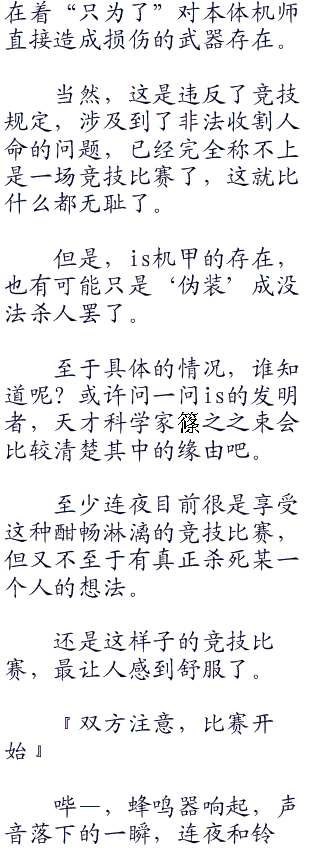 在着“只为了”对本体机师
直接造成损伤的武器存在。
当然，这是违反了竞技
规定，涉及到了非法收割人
命的问题，已经完全称不上
是一场竞技比赛了，这就比
什么都无耻了。
但是，is机甲的存在，
也有可能只是‘伪装’成没
法杀人罢了。
至于具体的情况，谁知
道呢？或许问一问is的发明
者，天才科学家篠之之束会
比较清楚其中的缘由吧。
至少连夜目前很是享受
这种酣畅淋漓的竞技比赛，
但又不至于有真正杀死某一
个人的想法。
还是这样子的竞技比
赛，最让人感到舒服了。
『双方注意，比赛开
始』
哔—，蜂鸣器响起，声
音落下的一瞬，连夜和铃